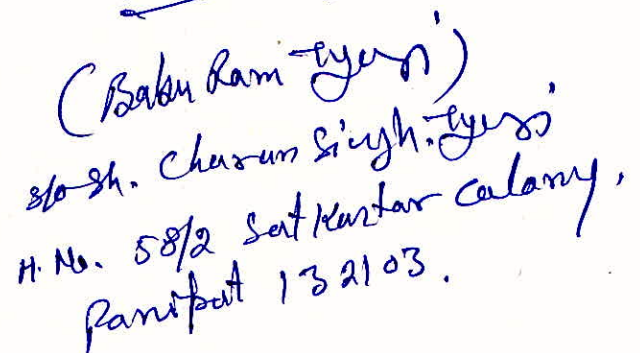 (Babu Ram Tyagi)
s/o Sh. Charan Singh. Tyagi
H. No. 58/2 Sat Kartar Calony,
Panipat 132103.